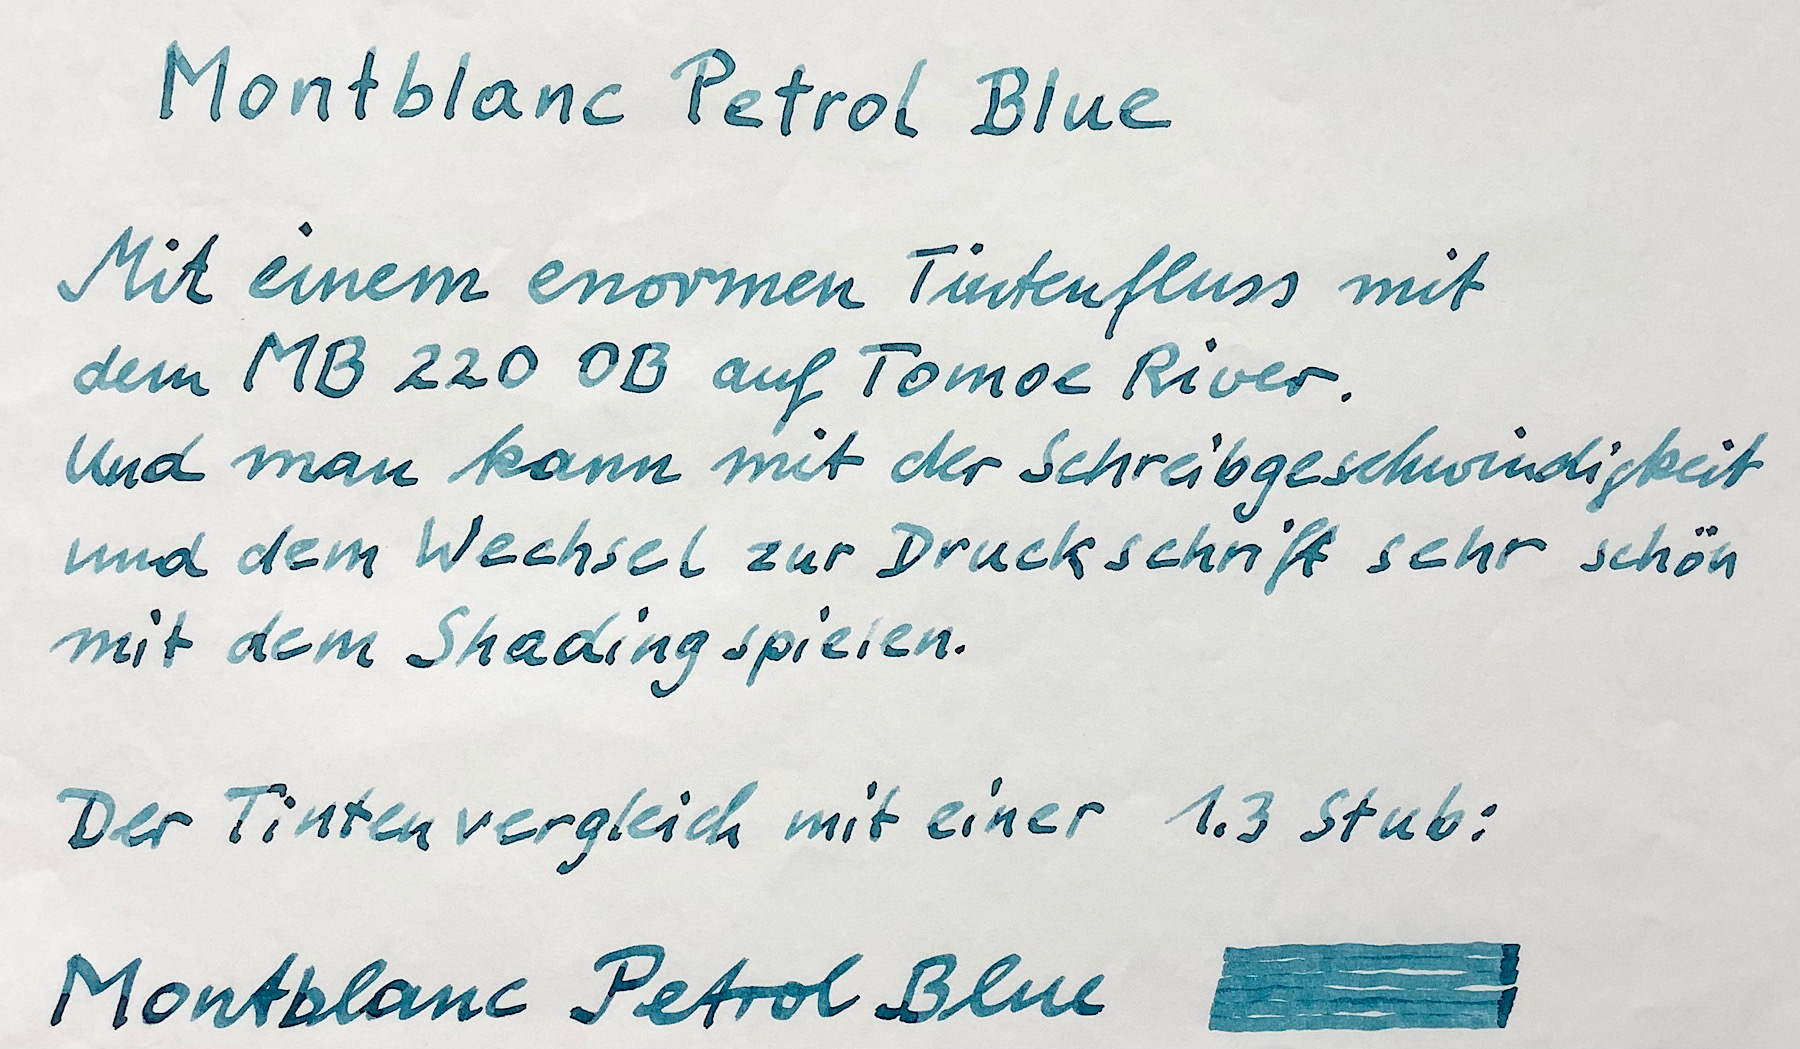 Montblanc Petrol Blue
Mit einem enormen Tintenfluss mit
dem MB 220 OB auf Tomoe River.
Und man kann mit der Schreibgeschwindigkeit
und dem Wechsel zur Druckschrift sehr schön
mit dem Shading spielen.
Der Tintenvergleich mit einer 1.3 Stub:
Montblanc Petrol Blue